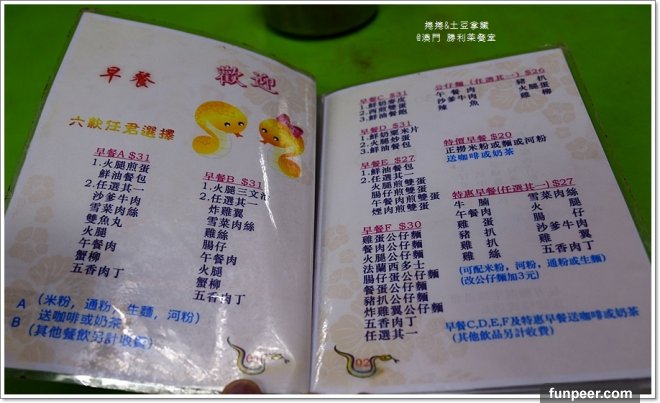 捲捲&土豆拿鐵
@澳門 勝利茶餐室
早餐
歡迎
六款任君選擇
早餐A $31
1.火腿煎蛋
鮮油餐包
2.任選其一
沙爹牛肉
雪菜肉絲
雙魚丸
火腿
午餐肉
蟹柳
五香肉丁
早餐B $31
1.火腿三文治
2.任選其一
炸雞翼
雪菜肉絲
雞絲
腸仔
午餐肉
火腿
蟹柳
五香肉丁
A (米粉，通粉，生麵，河粉)
B 送咖啡或奶茶
(其他餐飲另計收費)
01
早餐C $31
1.鮮奶麥皮
2.西煎雙蛋
3.鮮油餐飽
早餐D $31
1.鮮奶粟米片
2.火腿炒蛋
3.鮮油餐包
早餐E $27
1.鮮油餐包
2.任選其一
火腿煎雙蛋
腸仔煎雙蛋
午餐肉煎雙蛋
煙肉煎雙蛋
早餐F $30
雞蛋公仔麵
餐肉公仔麵
火腿公仔麵
法蘭西多士
腸仔蛋公仔麵
餐蛋公仔麵
豬扒公仔麵
炸雞翼公仔麵
五香肉丁
任選其一
02
公仔麵 (任選其一) $26
午餐肉 豬扒
沙爹牛肉 火腿蛋
辣魚 雞柳
特價早餐 $20
正撈米粉或麵或河粉
送咖啡或奶茶
特惠早餐(任選其一) $27
牛腩 雪菜肉絲
午餐肉 火腿
雞蛋 腸仔
豬扒 沙爹牛肉
雞扒 雞翼
雞絲 五香肉丁
(可配米粉，河粉，通粉或生麵)
(改公仔麵加3元)
早餐C,D,E,F及特惠早餐送咖啡或奶茶
(其他飲品另計收費)
funpeer.com